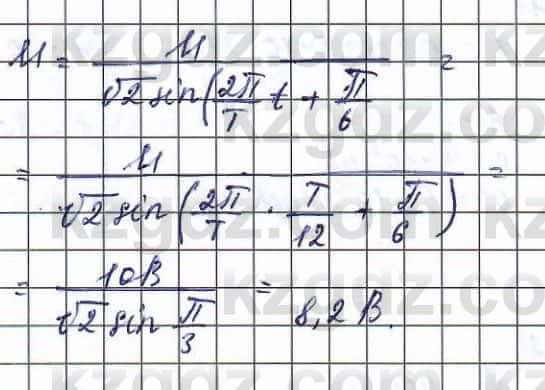 U = U / (√2 sin(2π/T t + π/6 =
= U / (√2 sin(2π/T · T/12 + π/6)) =
= 10В / (√2 sin π/3) = 8,2 В.
kzgdz.com